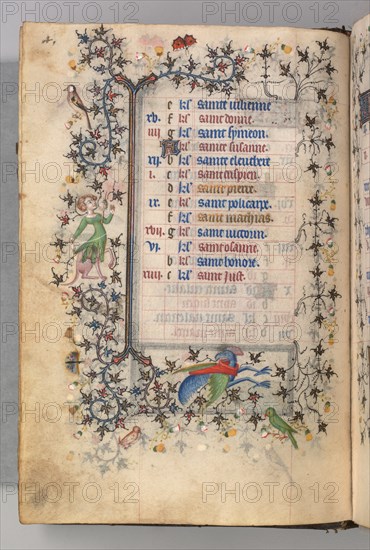 e kł sainte iulienne
xv. f kł saint donne.
iiii g kł saint symeon.
kł sainte susanne.
xii. b kł saint eleuthere
i. c kł saint
d kł saint pierre.
ix. e kł saint policarpe.
f kł saint mathias.
xvii. g kł saint uictorin.
vi. kł sainte osanne.
b kł saint honore.
xiiii c kł saint iust.
PHOTO 12